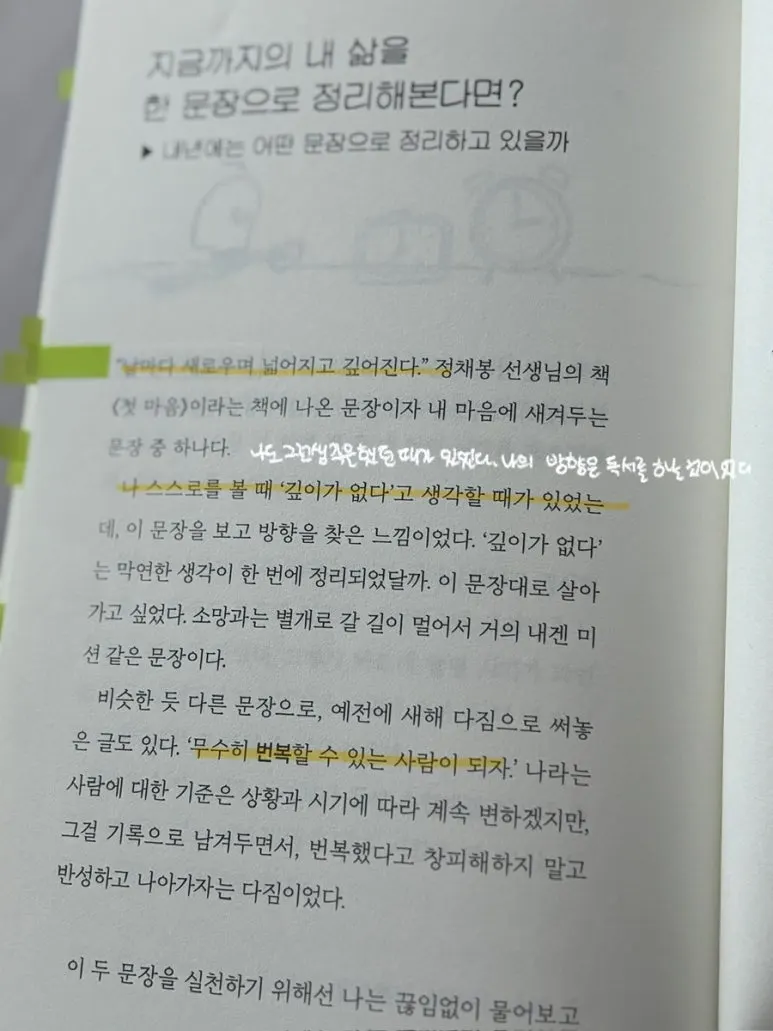 지금까지의 내 삶을
한 문장으로 정리해본다면?
▶ 내년에는 어떤 문장으로 정리하고 있을까
“날마다 새로우며 넓어지고 깊어진다.” 정채봉 선생님의 책
《첫 마음》이라는 책에 나온 문장이자 내 마음에 새겨두는
문장 중 하나다.
나도 그런 때가 있었다. 나의 방향은 독서를
나 스스로를 볼 때 ‘깊이가 없다’고 생각할 때가 있었는
데, 이 문장을 보고 방향을 찾은 느낌이었다. ‘깊이가 없다’
는 막연한 생각이 한 번에 정리되었달까. 이 문장대로 살아
가고 싶었다. 소망과는 별개로 갈 길이 멀어서 거의 내겐 미
션 같은 문장이다.
비슷한 듯 다른 문장으로, 예전에 새해 다짐으로 써놓
은 글도 있다. ‘무수히 번복할 수 있는 사람이 되자.’ 나라는
사람에 대한 기준은 상황과 시기에 따라 계속 변하겠지만,
그걸 기록으로 남겨두면서, 번복했다고 창피해하지 말고
반성하고 나아가자는 다짐이었다.
이 두 문장을 실천하기 위해선 나는 끊임없이 물어보고